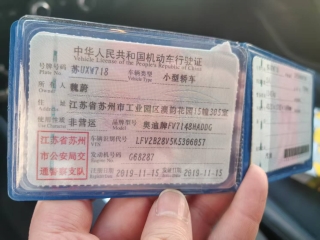 中华人民共和国机动车行驶证
Vehicle License of the People's Republic of China
号牌号码 苏UXW718 车辆类型 小型轿车
Plate No. Vehicle Type
所有人 魏蔚
Owner
住址 江苏省苏州市工业园区澳韵花园15幢305室
Address
使用性质 非营运 品牌型号 奥迪牌FV7148HADDG
Use Character Model
江苏省苏州
市公安局交
通警察支队
车辆识别代号 LFV2B28V5K5306057
VIN
发动机号码 G68287
Engine No.
注册日期 2019-11-15 发证日期 2019-11-15
Register Date Issue Date